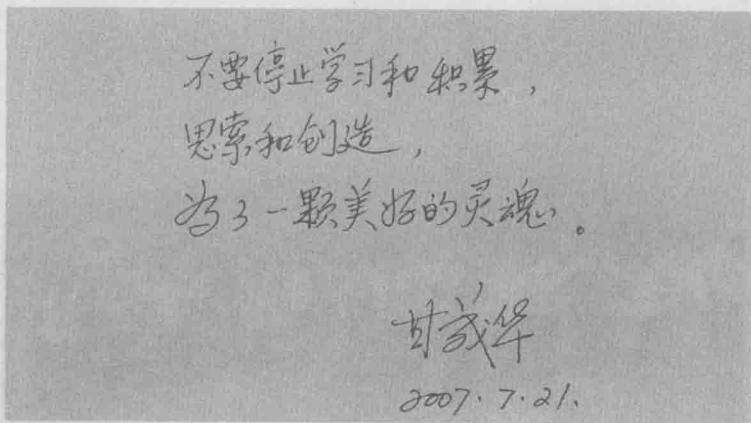 不要停止学习和积累，
思索和创造，
为了一颗美好的灵魂。
甘茂华
2007.7.21.